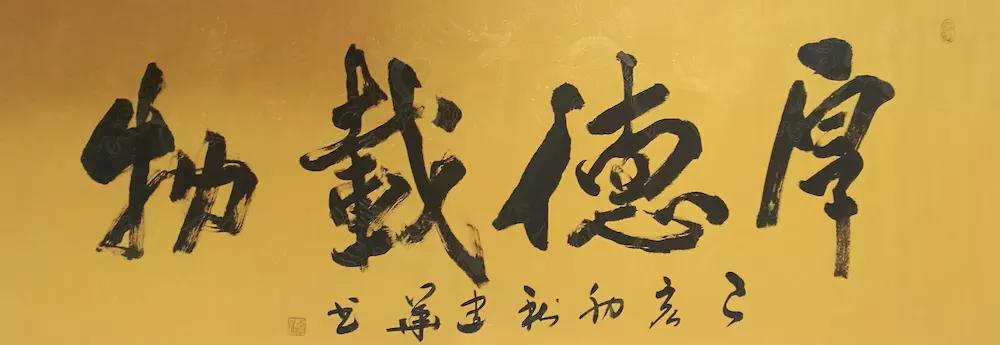 厚德載物
己亥初秋建華书